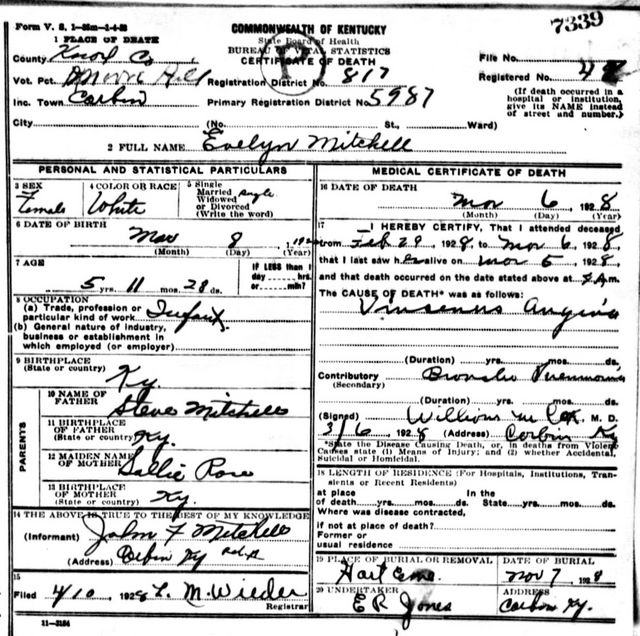 Form V. S. 1—35m—1-4-28
COMMONWEALTH OF KENTUCKY
7339
1 PLACE OF DEATH
State Board of Health
BUREAU OF VITAL STATISTICS
CERTIFICATE OF DEATH
County Knox Co
File No.
Vot. Pct. Moore Hill Registration District No. 817
Registered No.
Inc. Town Corbin Primary Registration District No. 5987
(If death occurred in a hospital or institution, give its NAME instead of street and number.)
City (No. St., Ward)
2 FULL NAME Evelyn Mitchell
PERSONAL AND STATISTICAL PARTICULARS
3 SEX Female
4 COLOR OR RACE White
5 Single Married Widowed or Divorced (Write the word) Single
6 DATE OF BIRTH
Mar 8, 192
(Month) (Day) (Year)
7 AGE
5 yrs. 11 mos. 28 ds.
IF LESS than 1 day hrs. or min.?
8 OCCUPATION
(a) Trade, profession or particular kind of work Infant
(b) General nature of industry, business or establishment in which employed (or employer)
9 BIRTHPLACE
(State or country) Ky
PARENTS
10 NAME OF FATHER Steve Mitchell
11 BIRTHPLACE OF FATHER (State or country) Ky.
12 MAIDEN NAME OF MOTHER Sallie Rose
13 BIRTHPLACE OF MOTHER (State or country) Ky.
14 THE ABOVE IS TRUE TO THE BEST OF MY KNOWLEDGE
(Informant) John F Mitchell
(Address) Corbin Ky
15
Filed 4/10 1928 L. M. Wieder
Registrar
11—3184
MEDICAL CERTIFICATE OF DEATH
16 DATE OF DEATH
Mar 6, 1928
(Month) (Day) (Year)
17 I HEREBY CERTIFY, That I attended deceased
from Feb 29, 1928, to Mar 6, 1928,
that I last saw her alive on Mar 5, 1928,
and that death occurred on the date stated above at m.
The CAUSE OF DEATH* was as follows:
Vinsenns Angina
(Duration) yrs. mos. ds.
Contributory Broncho Pneumonia
(Secondary)
(Duration) yrs. mos. ds.
(Signed) William M M. D.
3/6, 1928 (Address) Corbin Ky
*State the Disease Causing Death, or, in deaths from Violent Causes state (1) Means of Injury; and (2) whether Accidental, Suicidal or Homicidal.
18 LENGTH OF RESIDENCE (For Hospitals, Institutions, Transients or Recent Residents)
at place of death yrs. mos. ds. In the State yrs. mos. ds.
Where was disease contracted,
if not at place of death?
Former or usual residence
19 PLACE OF BURIAL OR REMOVAL Hart Cem.
DATE OF BURIAL Mar 7, 1928
20 UNDERTAKER E R Jones
ADDRESS Corbin Ky.